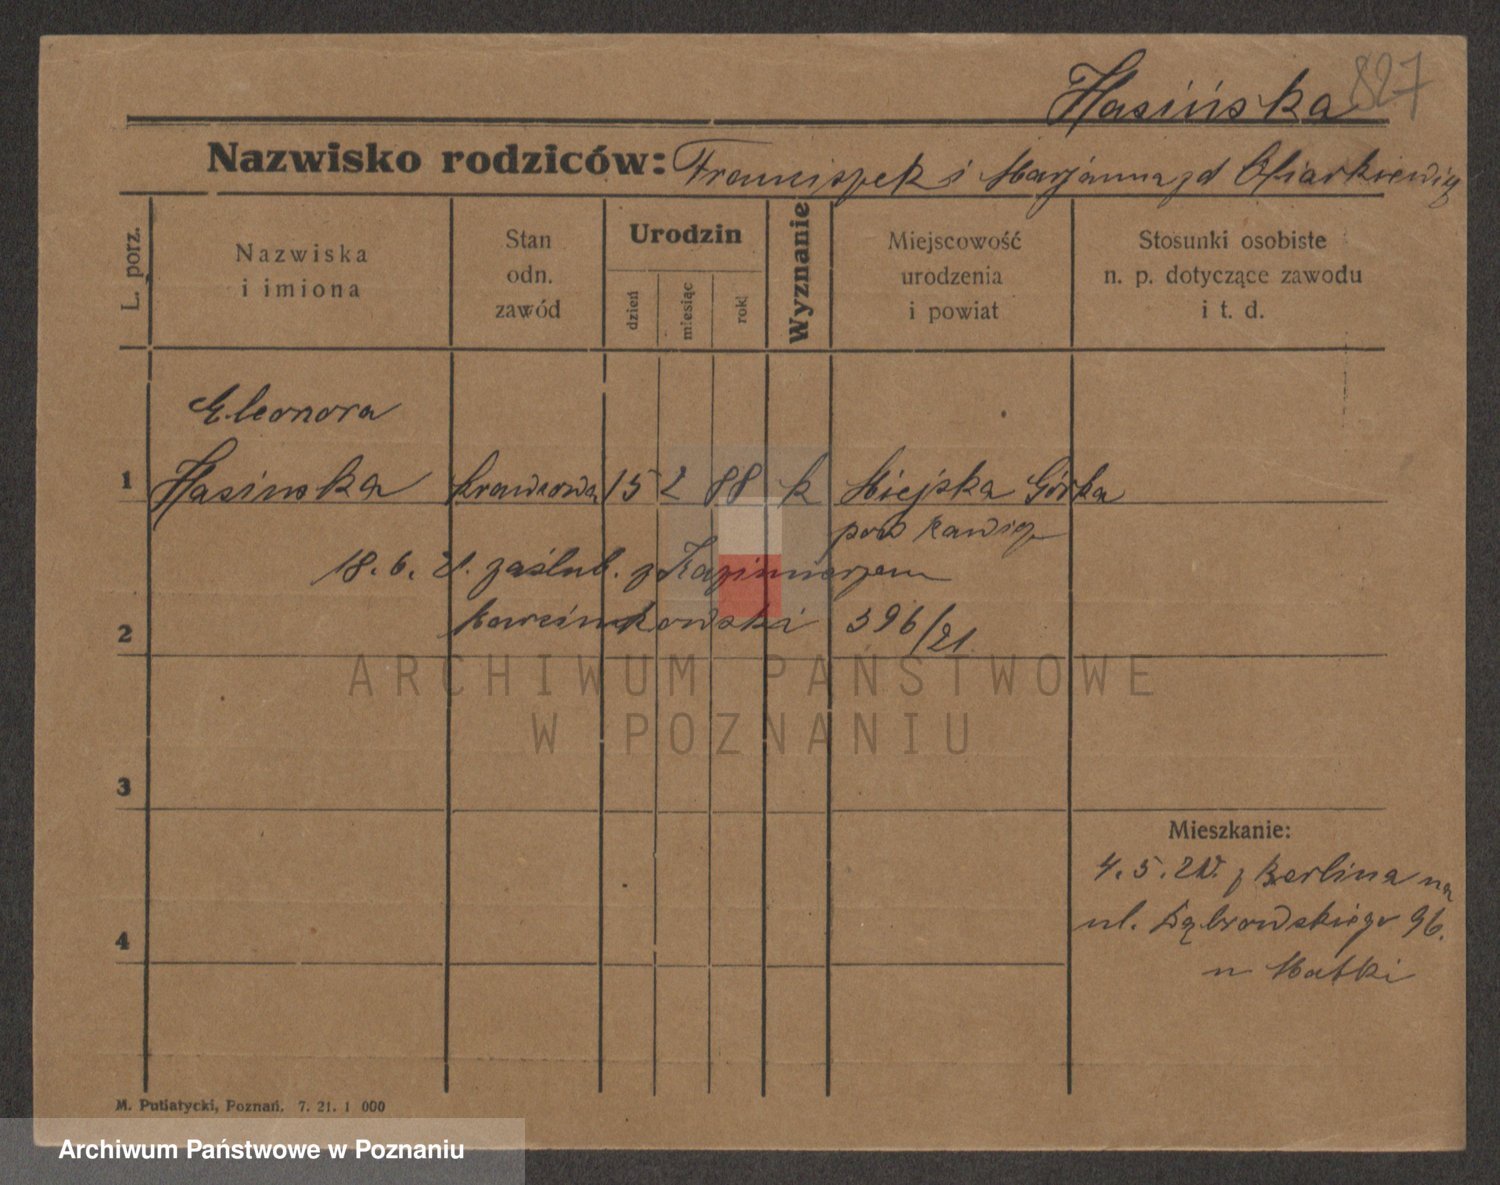 Hasińska 827
Nazwisko rodziców: Franciszek i Marjanna zd Ofiarkiewicz
L. porz.
Nazwiska
i imiona
Stan
odn.
zawód
Urodzin
dzień
miesiąc
rok
Wyznanie
Miejscowość
urodzenia
i powiat
Stosunki osobiste
n. p. dotyczące zawodu
i t. d.
Eleonora
1 Hasinska krawcowa 15 2 88 k Miejska Górka
pow Rawicz
18. 6. 21. zaślub. z Kazimierzem
2 Marcinkowski 396/21
ARCHIWUM PAŃSTWOWE
W POZNANIU
3
Mieszkanie:
4. 5. z Berlina na
4 ul. Dąbrowskiego 96.
u Matki
M. Putiatycki, Poznań. 7. 21. 1 000
Archiwum Państwowe w Poznaniu